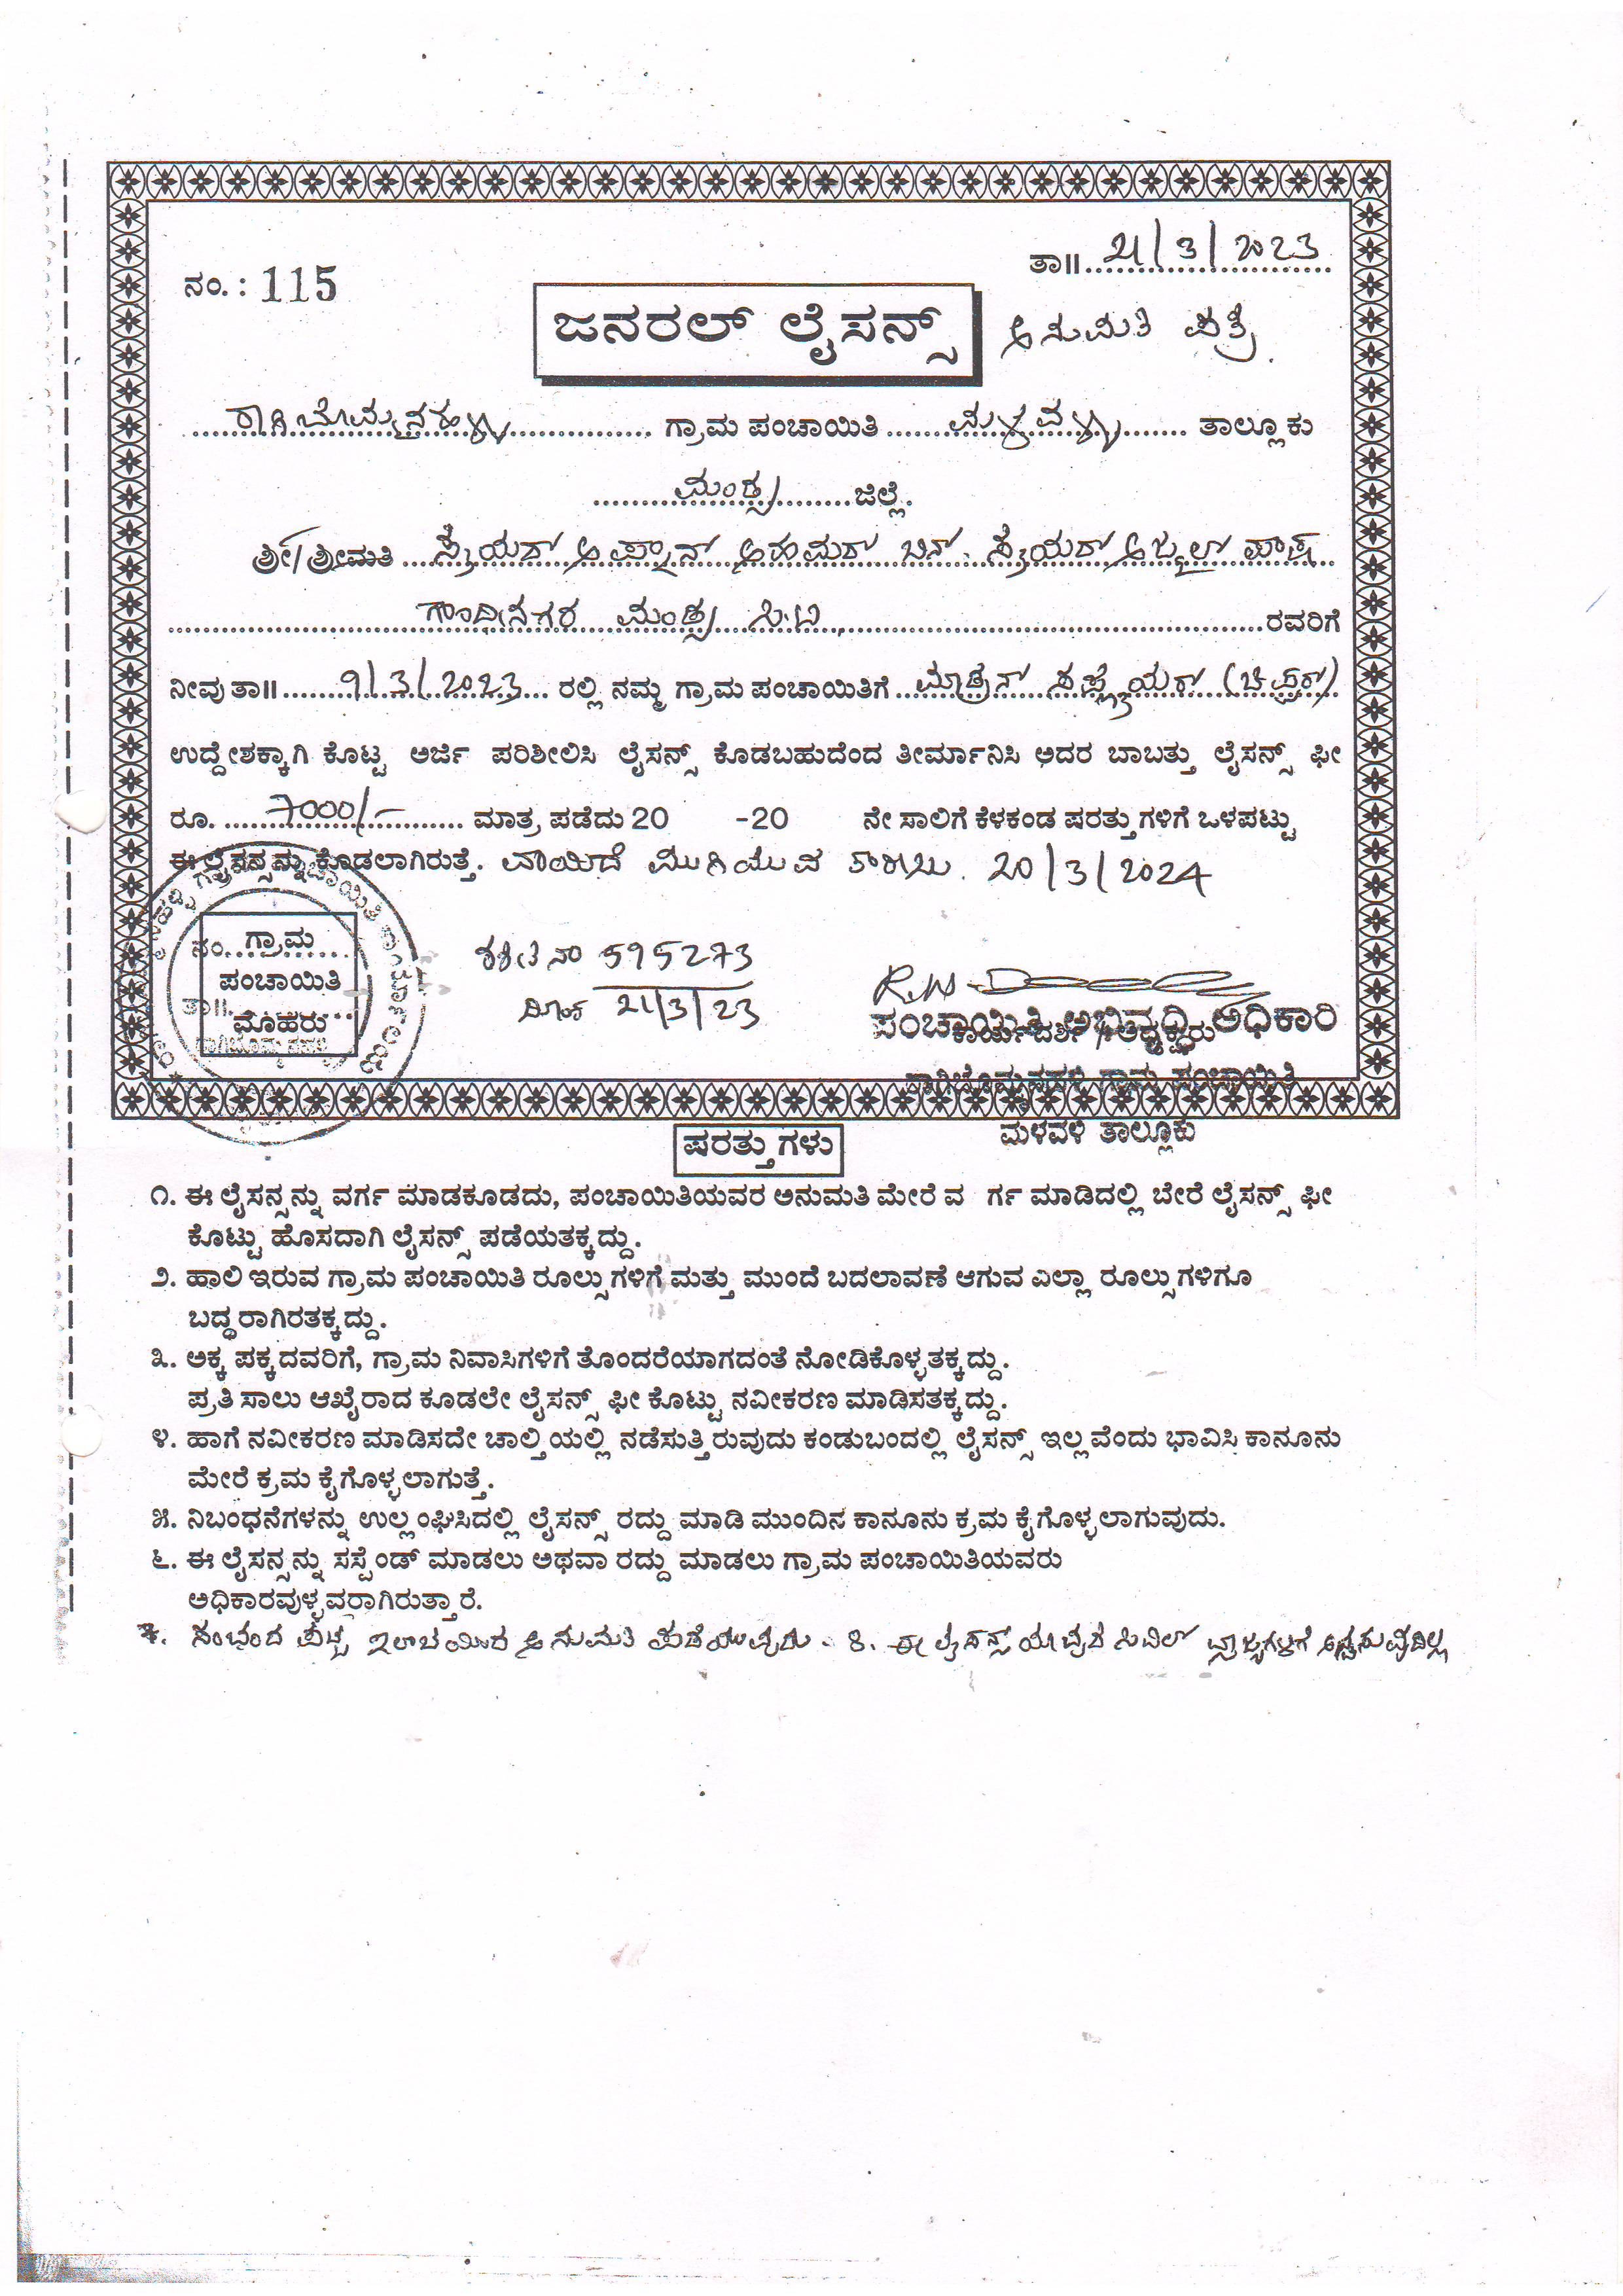 ನಂ. : 115
ತಾ॥ 21/3/2023
ಜನರಲ್ ಲೈಸನ್ಸ್ ಅನುಮತಿ ಪತ್ರ.
ರಾಗಿಬೊಮ್ಮನಹಳ್ಳಿ ಗ್ರಾಮ ಪಂಚಾಯಿತಿ ಮಳವಳ್ಳಿ ತಾಲ್ಲೂಕು
ಮಂಡ್ಯ ಜಿಲ್ಲೆ.
ಶ್ರೀ/ಶ್ರೀಮತಿ ಸೈಯದ್ ಅಫ್ನಾನ್ ಅಹಮದ್ ಬಿನ್. ಸೈಯದ್ ಅಪ್ಜಲ್ ಪಾಷ
ಗಾಂಧಿನಗರ ಮಂಡ್ಯ ಸಿಟಿ, ರವರಿಗೆ
ನೀವು ತಾ॥ 9/3/2023 ರಲ್ಲಿ ನಮ್ಮ ಗ್ರಾಮ ಪಂಚಾಯಿತಿಗೆ ಮಾಡ್ರನ್ ಸಪ್ಲೈಯರ್ (ಚಪ್ಪರ್)
ಉದ್ದೇಶಕ್ಕಾಗಿ ಕೊಟ್ಟ ಅರ್ಜಿ ಪರಿಶೀಲಿಸಿ ಲೈಸನ್ಸ್ ಕೊಡಬಹುದೆಂದ ತೀರ್ಮಾನಿಸಿ ಅದರ ಬಾಬತ್ತು ಲೈಸನ್ಸ್ ಫೀ
ರೂ. 7000/- ಮಾತ್ರ ಪಡೆದು 20 -20 ನೇ ಸಾಲಿಗೆ ಕೆಳಕಂಡ ಷರತ್ತುಗಳಿಗೆ ಒಳಪಟ್ಟು
ಈ ಲೈಸನ್ಸನ್ನು ಕೊಡಲಾಗಿರುತ್ತೆ. ವಾಯಿದೆ ಮುಗಿಯುವ ತಾರೀಖು. 20/3/2024
ನಂ. ಗ್ರಾಮ
ಪಂಚಾಯಿತಿ
ತಾ॥ ಮೊಹರು
ರಶೀತಿ ನಂ 595273
ದಿನಾಂಕ 21/3/23
ಪಂಚಾಯಿತಿ ಅಭಿವೃದ್ಧಿ ಅಧಿಕಾರಿ
ಕಾರ್ಯದರ್ಶಿ / ಅಧ್ಯಕ್ಷರು
ರಾಗಿಬೊಮ್ಮನಹಳ್ಳಿ ಗ್ರಾಮ ಪಂಚಾಯಿತಿ
ಮಳವಳ್ಳಿ ತಾಲ್ಲೂಕು
ಷರತ್ತುಗಳು
೧. ಈ ಲೈಸನ್ಸನ್ನು ವರ್ಗ ಮಾಡಕೂಡದು, ಪಂಚಾಯಿತಿಯವರ ಅನುಮತಿ ಮೇರೆ ವ ರ್ಗ ಮಾಡಿದಲ್ಲಿ ಬೇರೆ ಲೈಸನ್ಸ್ ಫೀ
ಕೊಟ್ಟು ಹೊಸದಾಗಿ ಲೈಸನ್ಸ್ ಪಡೆಯತಕ್ಕದ್ದು.
೨. ಹಾಲಿ ಇರುವ ಗ್ರಾಮ ಪಂಚಾಯಿತಿ ರೂಲ್ಸುಗಳಿಗೆ ಮತ್ತು ಮುಂದೆ ಬದಲಾವಣೆ ಆಗುವ ಎಲ್ಲಾ ರೂಲ್ಸುಗಳಿಗೂ
ಬದ್ಧರಾಗಿರತಕ್ಕದ್ದು.
೩. ಅಕ್ಕ ಪಕ್ಕದವರಿಗೆ, ಗ್ರಾಮ ನಿವಾಸಿಗಳಿಗೆ ತೊಂದರೆಯಾಗದಂತೆ ನೋಡಿಕೊಳ್ಳತಕ್ಕದ್ದು.
ಪ್ರತಿ ಸಾಲು ಆಖೈರಾದ ಕೂಡಲೇ ಲೈಸನ್ಸ್ ಫೀ ಕೊಟ್ಟು ನವೀಕರಣ ಮಾಡಿಸತಕ್ಕದ್ದು.
೪. ಹಾಗೆ ನವೀಕರಣ ಮಾಡಿಸದೇ ಚಾಲ್ತಿಯಲ್ಲಿ ನಡೆಸುತ್ತಿರುವುದು ಕಂಡುಬಂದಲ್ಲಿ ಲೈಸನ್ಸ್ ಇಲ್ಲವೆಂದು ಭಾವಿಸಿ ಕಾನೂನು
ಮೇರೆ ಕ್ರಮ ಕೈಗೊಳ್ಳಲಾಗುತ್ತೆ.
೫. ನಿಬಂಧನೆಗಳನ್ನು ಉಲ್ಲಂಘಿಸಿದಲ್ಲಿ ಲೈಸನ್ಸ್ ರದ್ದು ಮಾಡಿ ಮುಂದಿನ ಕಾನೂನು ಕ್ರಮ ಕೈಗೊಳ್ಳಲಾಗುವುದು.
೬. ಈ ಲೈಸನ್ಸನ್ನು ಸಸ್ಪೆಂಡ್ ಮಾಡಲು ಅಥವಾ ರದ್ದು ಮಾಡಲು ಗ್ರಾಮ ಪಂಚಾಯಿತಿಯವರು
ಅಧಿಕಾರವುಳ್ಳವರಾಗಿರುತ್ತಾರೆ.
7. ಸಂಬಂಧ ಪಟ್ಟ ಇಲಾಖೆಯಿಂದ ಅನುಮತಿ ಪಡೆಯುವುದು. 8. ಈ ಲೈಸನ್ಸ್ ಯಾವುದೇ ಸಿವಿಲ್ ವ್ಯಾಜ್ಯಗಳಿಗೆ ಅನ್ವಯಿಸುವುದಿಲ್ಲ